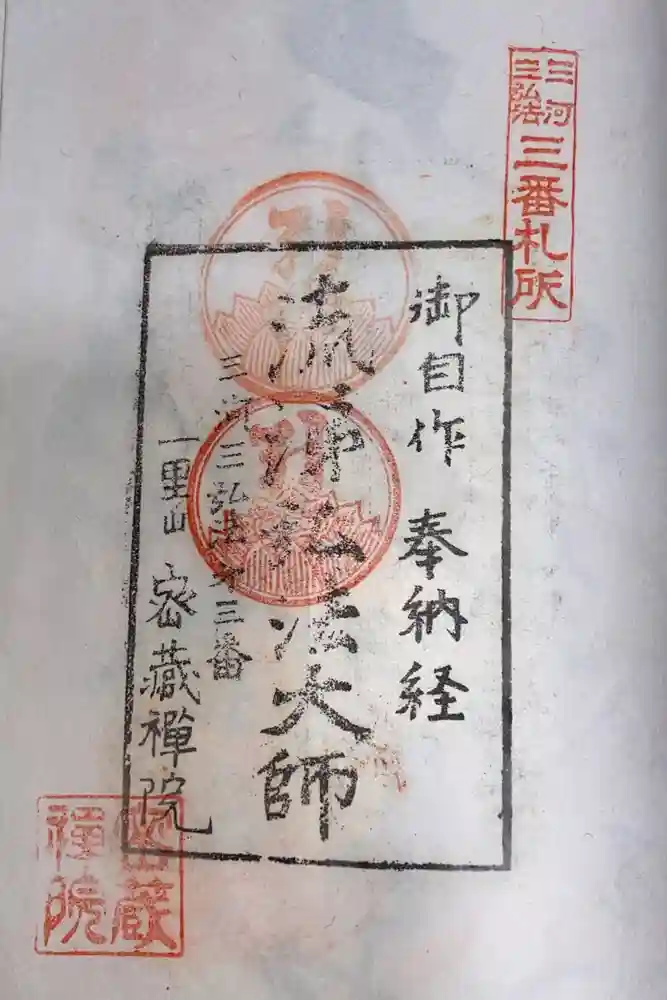 三河
三弘法
三番札所
御自作 奉納経
流涕弘法大師
三河三弘法才三番
一里山 密藏禪院
密蔵
禪院